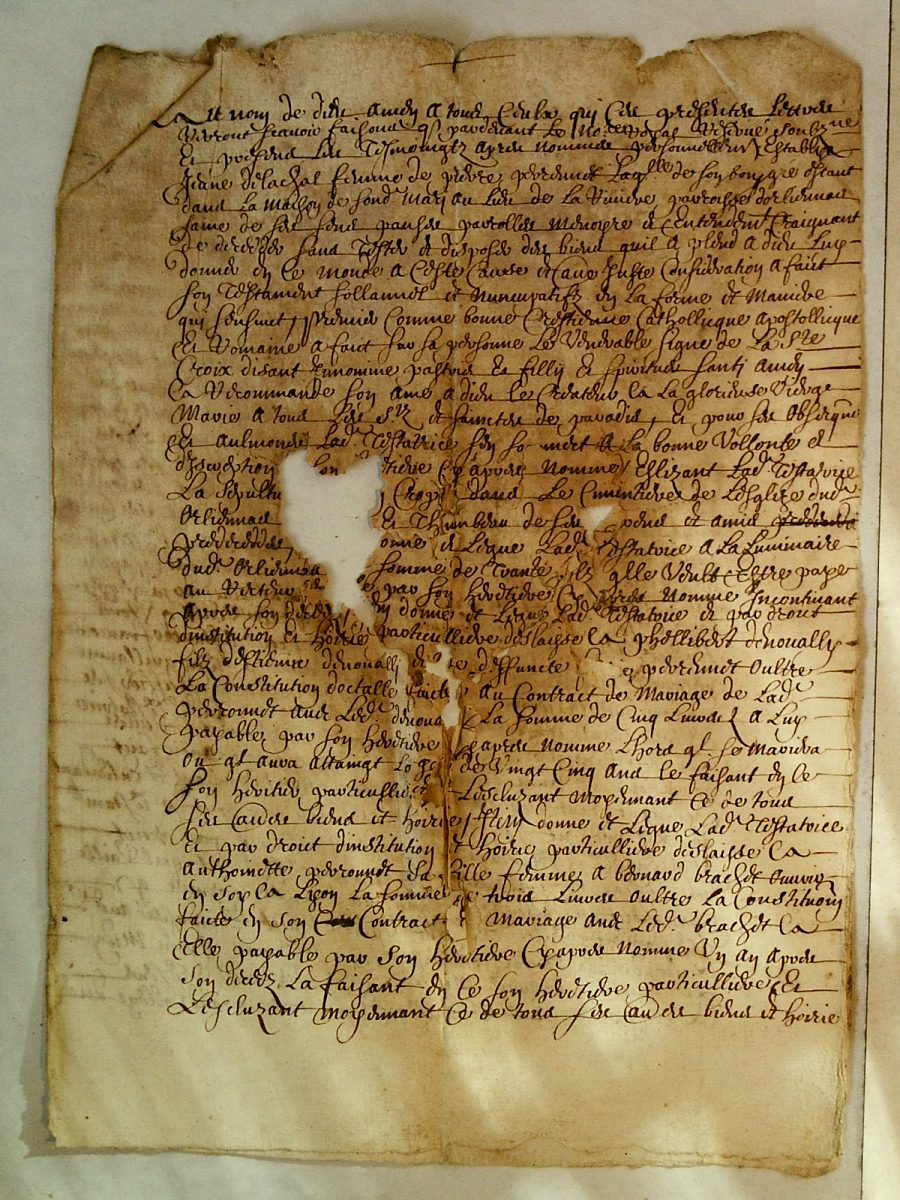 Au nom de dieu amen a tous ceulx qui ces presentes lettres
verront scavoir faisons q par devant le no.re royal reservé soubz.né
Et presens les tesmoingtz apres nommes personnellemt establye
Jeane delachal femme de pierre peronnet laqlle de son bon gré estant
dans la maison de sond. mary au lieu de la parroisse dorliennas
saine de ses sens pansee parrolles memoyre et entendemt craignant
de deceder sans tester et disposer des biens quil a pleust a dieu luy
donner en ce monde a ceste cause et aue juste consideration a faict
son testament sollannel et nuncupatifz en la forme et maniere
qui sensuict, premier comme bonne crestienne catholicque apostollicque
et romaine a faict sur sa personne le venerable signe de la ste
croix disant Innomine pastris et fillij et spiritus santi amen
Ca recommande son ame a dieu le createur Ca la glorieuse vierge
Marie a tous les s.tz et sainctes de paradis, et pour ses obseques
et aulmones lad. testatrice sen so met a la bonne vollonte et
discretion son tiere cy apres nommee, ellizant lad. testatrice
La sepultu corps dans le cimintiere de lesglize dud.
Orliennas Et thumbeau de ses pens et amis
Predecedes onne et legue lad. testatrice a la luminaire
dud. Orliennas somme de trante qlle veult estre paye
au par son heretiere cy apres nommee Incontinant
apres son deces en donne et legue lad. testatrice et par droit
dinstitution et hoirie particulliere deslaisse Ca phellibert denoually
filz destienne denoually et de deffuncte e peronnet oultre
La constitution doctalle faicte au contract de mariage de lad.
peronnet auec led. denoua la somme de cinq livres a luy
payables par son heretiere cy apres nommee lhors ql se mariera
ou ql aura attaingt lage de vingt cinq ans le faisant en ce
son heritier particullier Lescluzant moyennant ce de tous
ses autres biens et hoirie, Item donne et legue lad. testatrice
et par droit dinstitution et hoirie particulliere deslaisse Ca
Anthoinette peronnet sa fille femme a benard brachet
en soy Ca Lyon la somme de trois livres oultre la constitution
faicte en son contract de mariage auec led. brachet Ca
elle payable par son heretiere cy apres nommee Un an apres
son deces, La faisant en ce son heretiere particulliere Et
Lescluzant moyennant ce de tous ses autres biens et hoirie